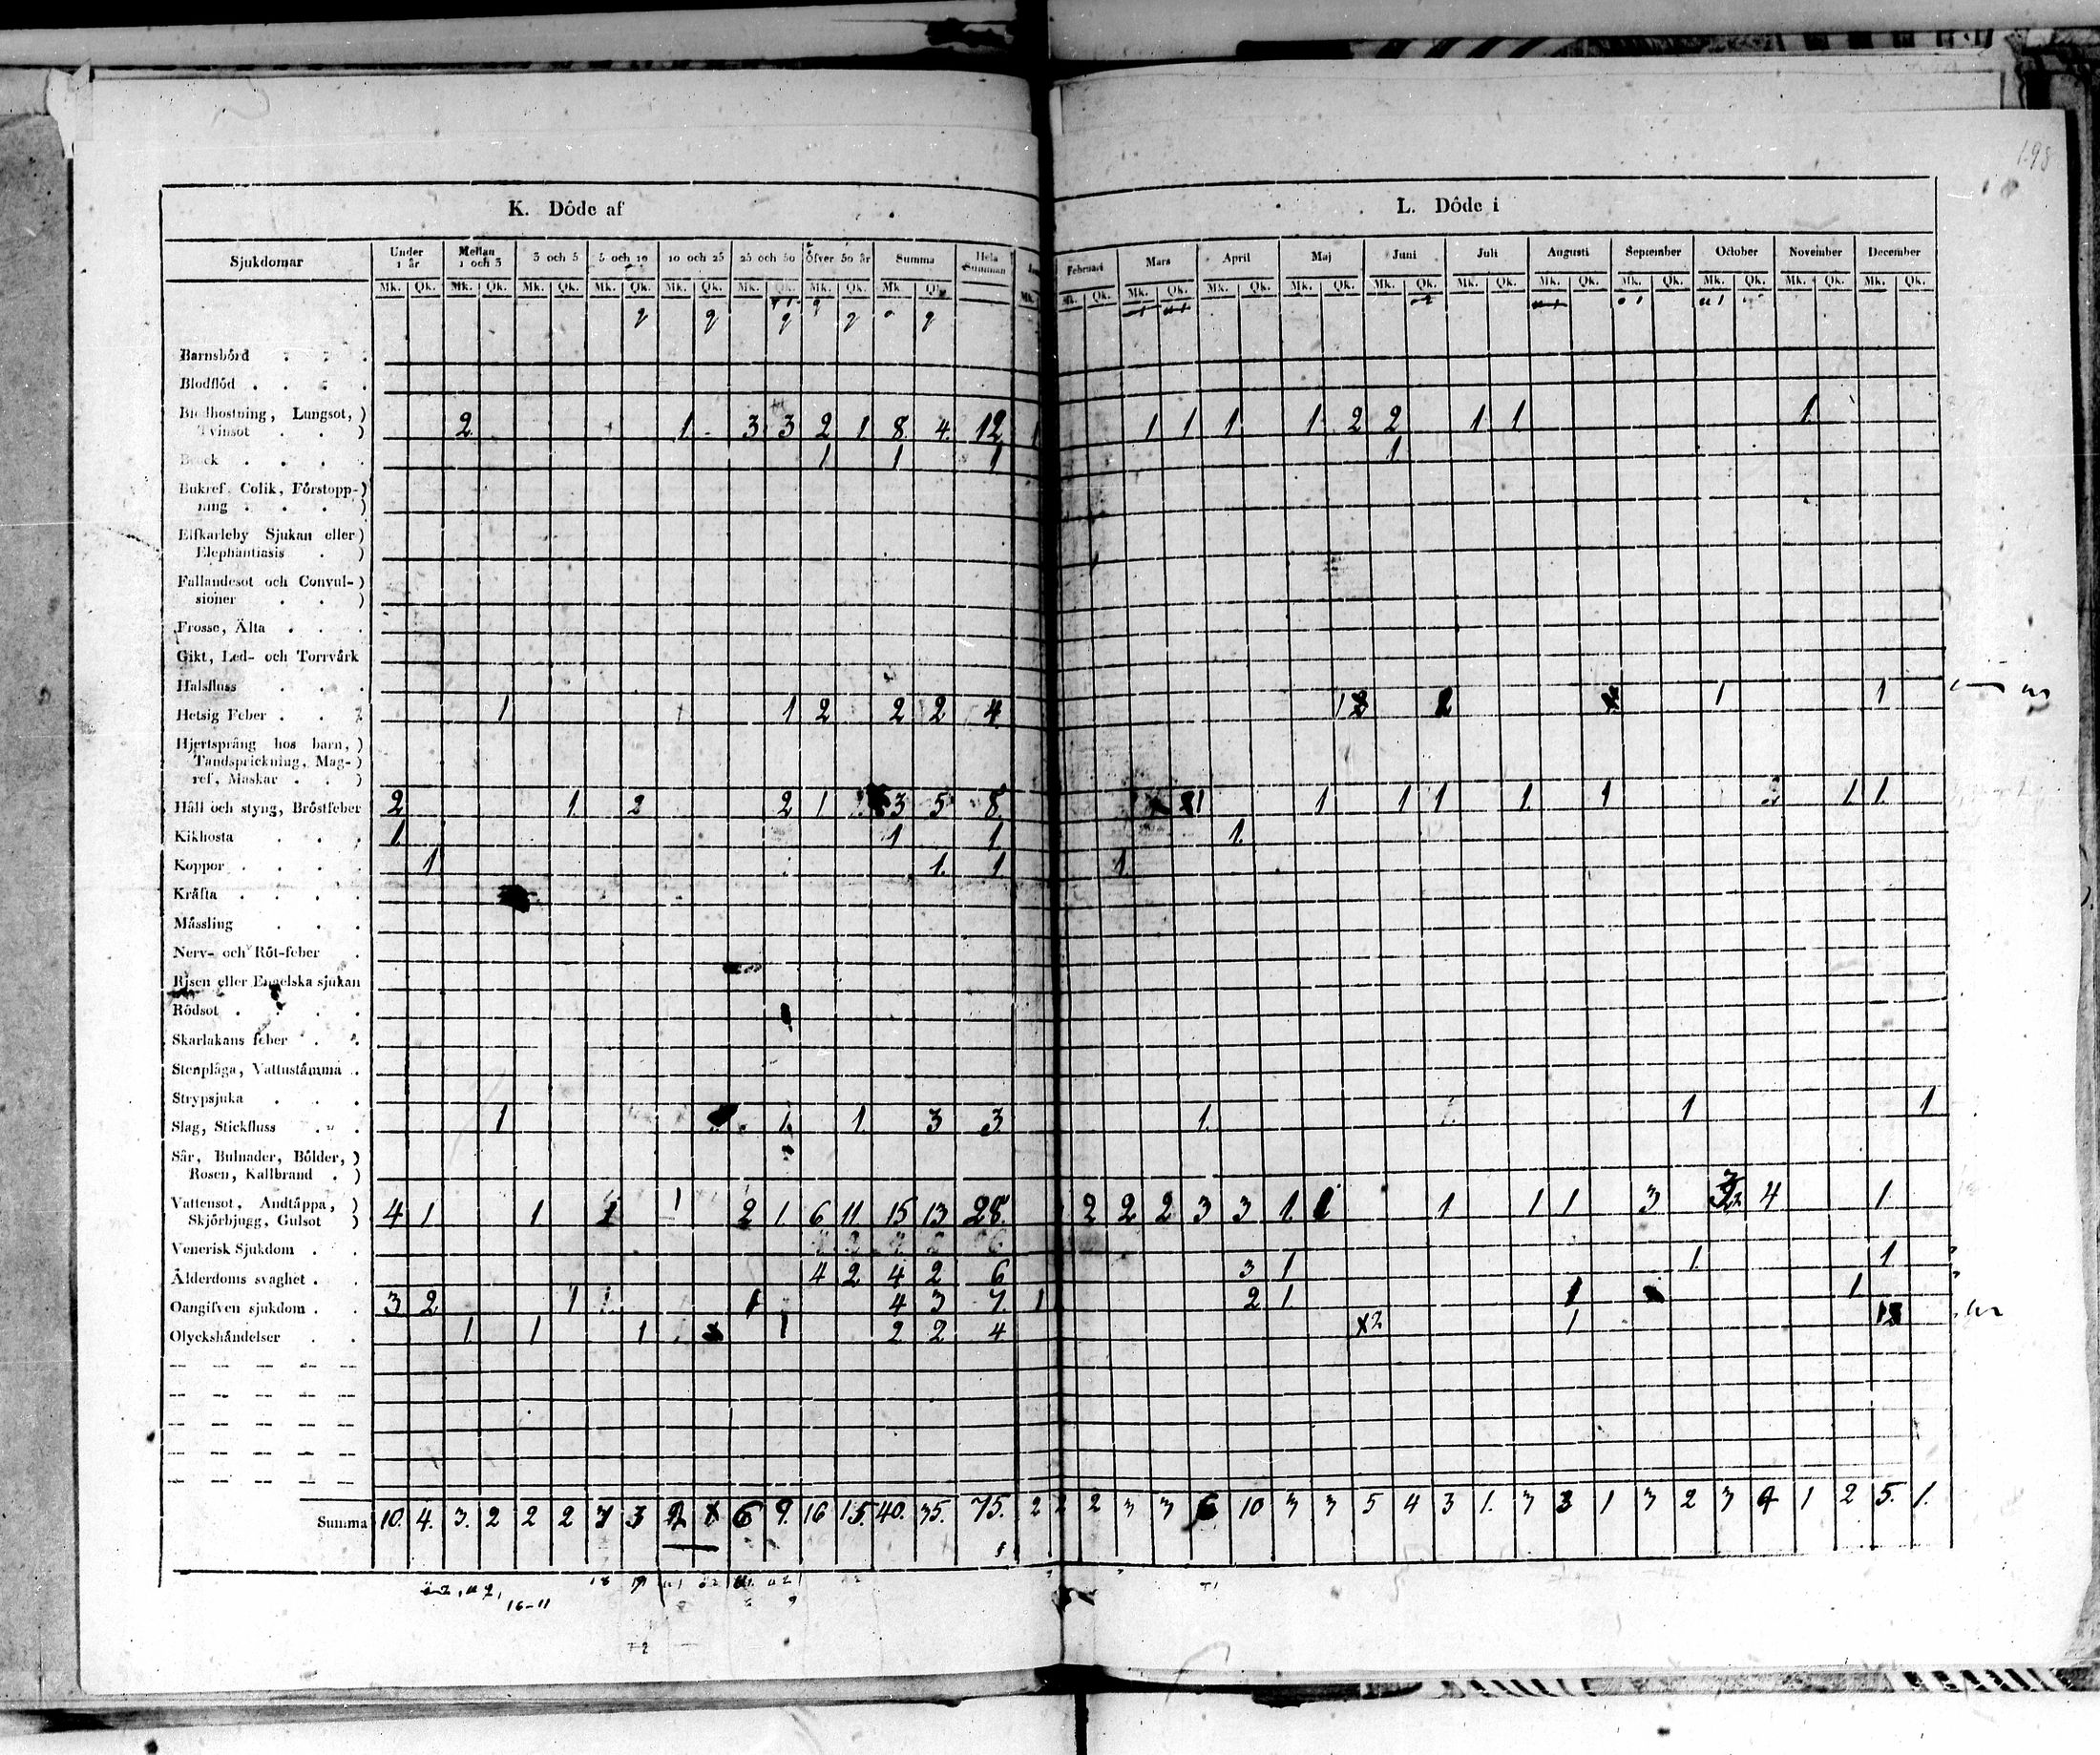 198
K. Döde af
L. Döde i
Sjukdomar Under 1 år Mellan 1 och 3 3 och 5 5 och 10 10 och 25 25 och 50 Öfver 50 år Summa Hela Summan
Februari Mars April Maj Juni Juli Augusti September October November December
Mk. Qk. Mk. Qk. Mk. Qk. Mk. Qk. Mk. Qk. Mk. Qk. Mk. Qk. Mk. Qk. Mk.
Mk. Qk. Mk. Qk. Mk. Qk. Mk. Qk. Mk. Qk. Mk. Qk. Mk. Qk. Mk. Qk. Mk. Qk. Mk. Qk. Mk. Qk.
Barnsbörd
Blodflöd
Blodhostning, Lungsot,)
Tvinsot ) 2. 1 3 3 2 1 8. 4. 12 1 1 1 1 1 2 2 1 1 1.
Bråck 1 1 1 1
Bukref, Colik, Förstopp-)
ning )
Elfkarleby Sjukan eller)
Elephantiasis )
Fallandesot och Convul-)
sioner )
Frosse, Älta
Gikt, Led- och Torrvärk
Halsfluss
Hetsig Feber 1 1 2 2 2 4 1 1 1
Hjertsprång hos barn,)
Tandsprickning, Mag-)
ref, Maskar )
Håll och styng, Bröstfeber 2 1. 2 2 1 3 5 8. 1 1 1 1 1. 1 1 1.
Kikhosta 1. 1 1. 1.
Koppor 1 1. 1 1.
Kräfta
Mässling
Nerv- och Röt-feber
Risen eller Engelska sjukan
Rödsot
Skarlakans feber
Stenplåga, Vattustämma
Strypsjuka
Slag, Stickfluss 1 1. 1. 3 3. 1. 1 1
Sår, Bulnader, Bölder,)
Rosen, Kallbrand )
Vattensot, Andtäppa,)
Skjörbjugg, Gulsot ) 4 1 1 1 1 2 1. 6 11. 15 13 28. 2 2 2 3 3 1. 1 1 1 1 3 4 1.
Venerisk Sjukdom
Ålderdoms svaghet 4 2 4 2 6 3 1 1. 1
Oangifven sjukdom 3 2 1 1. 1 4 3 7. 1 2 1. 1 1
Olyckshändelser 1 1 1 1 2 2 4 2 1
Summa 10. 4. 3. 2 2 2 3 3 6 9. 16 15. 40. 35. 75. 2 2 2 3 3 6 10 3 3 5 4 3 1. 3 3 1 3 2 3 4 1 2 5. 1.
16-11